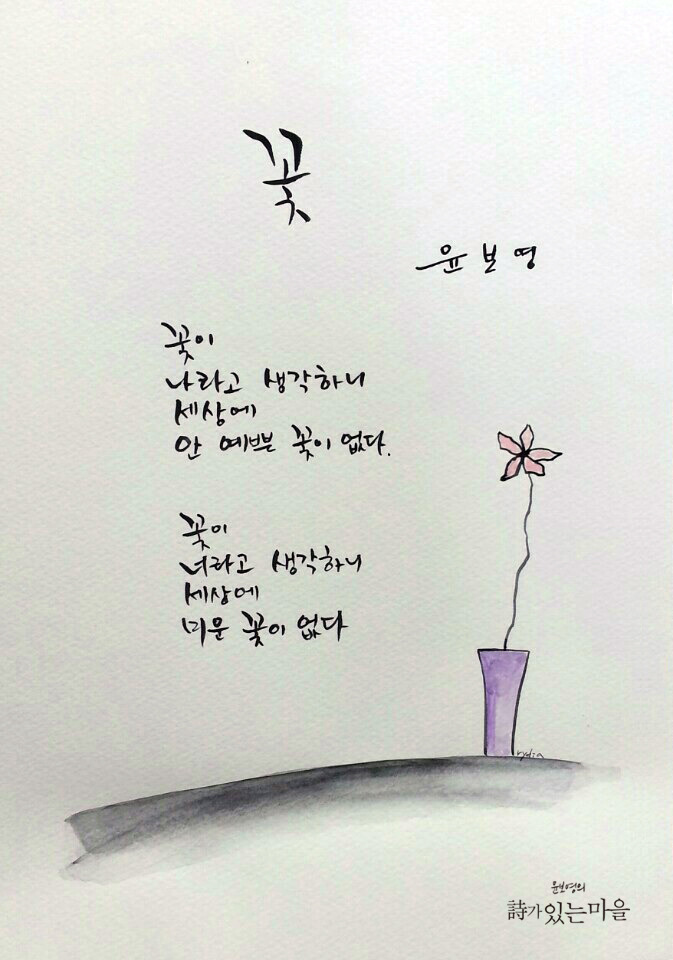 꽃
윤보영
꽃이
나라고 생각하니
세상에
안 예쁜 꽃이 없다.
꽃이
너라고 생각하니
세상에
미운 꽃이 없다
rydia
윤보영의
詩가 있는 마을